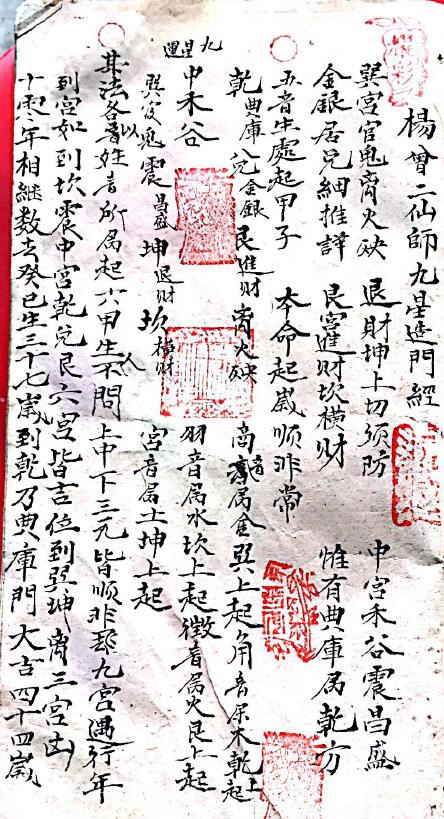 楊曾二仙師九星造門經
巽宮官鬼离火殃 退財坤上切須防 中宮禾谷震昌盛
金銀居兑細推詳 艮宮進財坎橫財 惟有典庫属乾方
五音生處起甲子 本命起歲順非常
乾典庫 兑金銀 艮進財 离火殃 商音属金巽上起角音属木乾上起
九星運
中禾谷 羽音属水坎上起徵音属火艮上起
巽官鬼 震昌盛 坤退財 坎橫財 宮音属土坤上起
其法各以音姓音所属起六甲生人不問上中下三元皆順非九宮遇行年
到宮如到坎震中宮乾兑艮六宮皆吉位到巽坤离三宮凶
十零年相継数去癸巳生三十七歲到乾乃典庫門大吉四十四歲